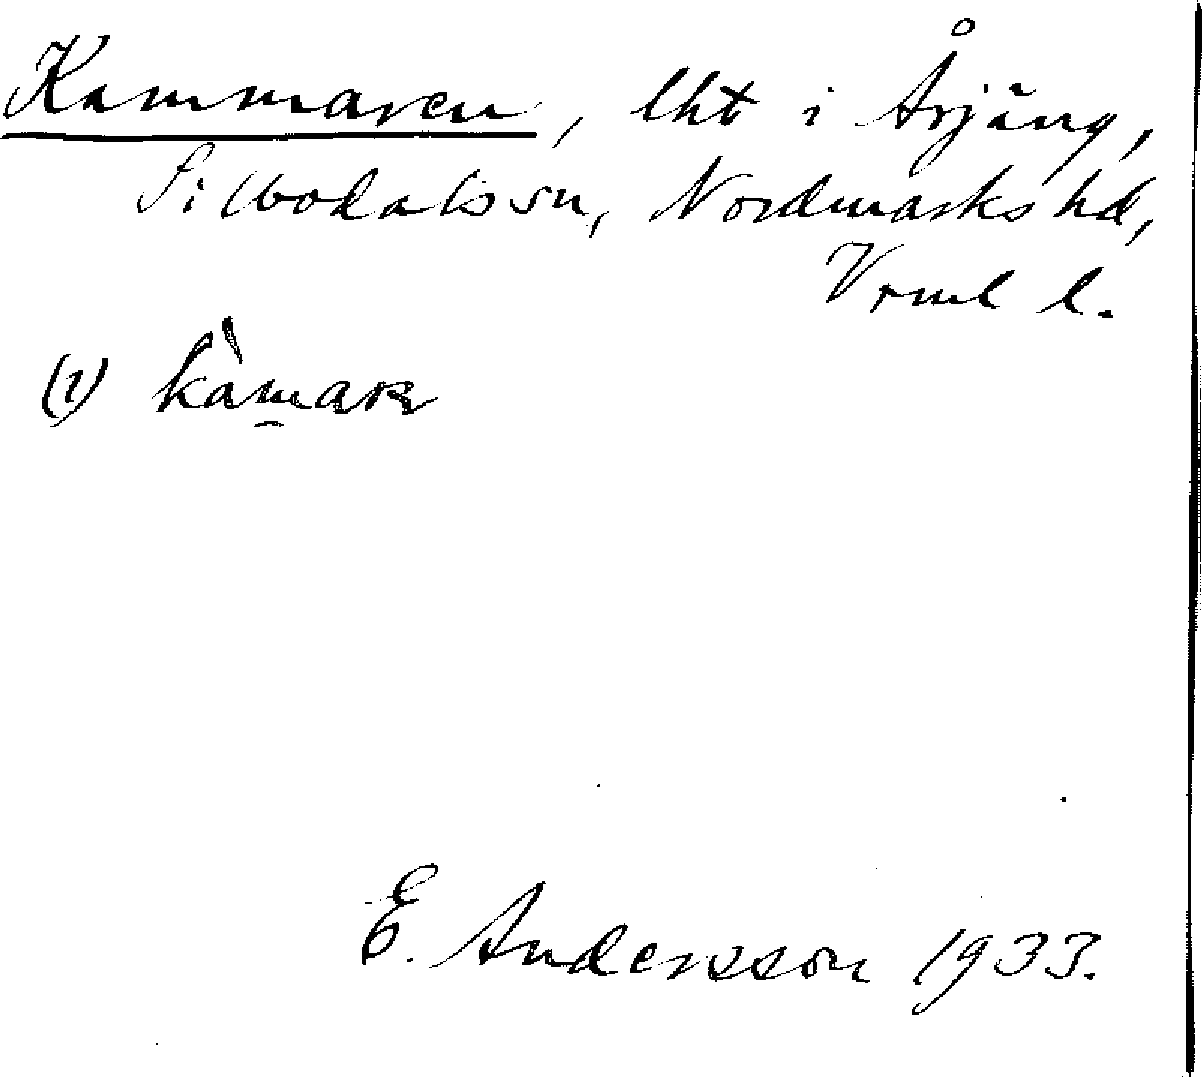 Kammaren, lht i Årjäng,
Silbodals sn, Nordmarks hd,
Vrml l.
(1) kàmar
E. Andersson 1933.